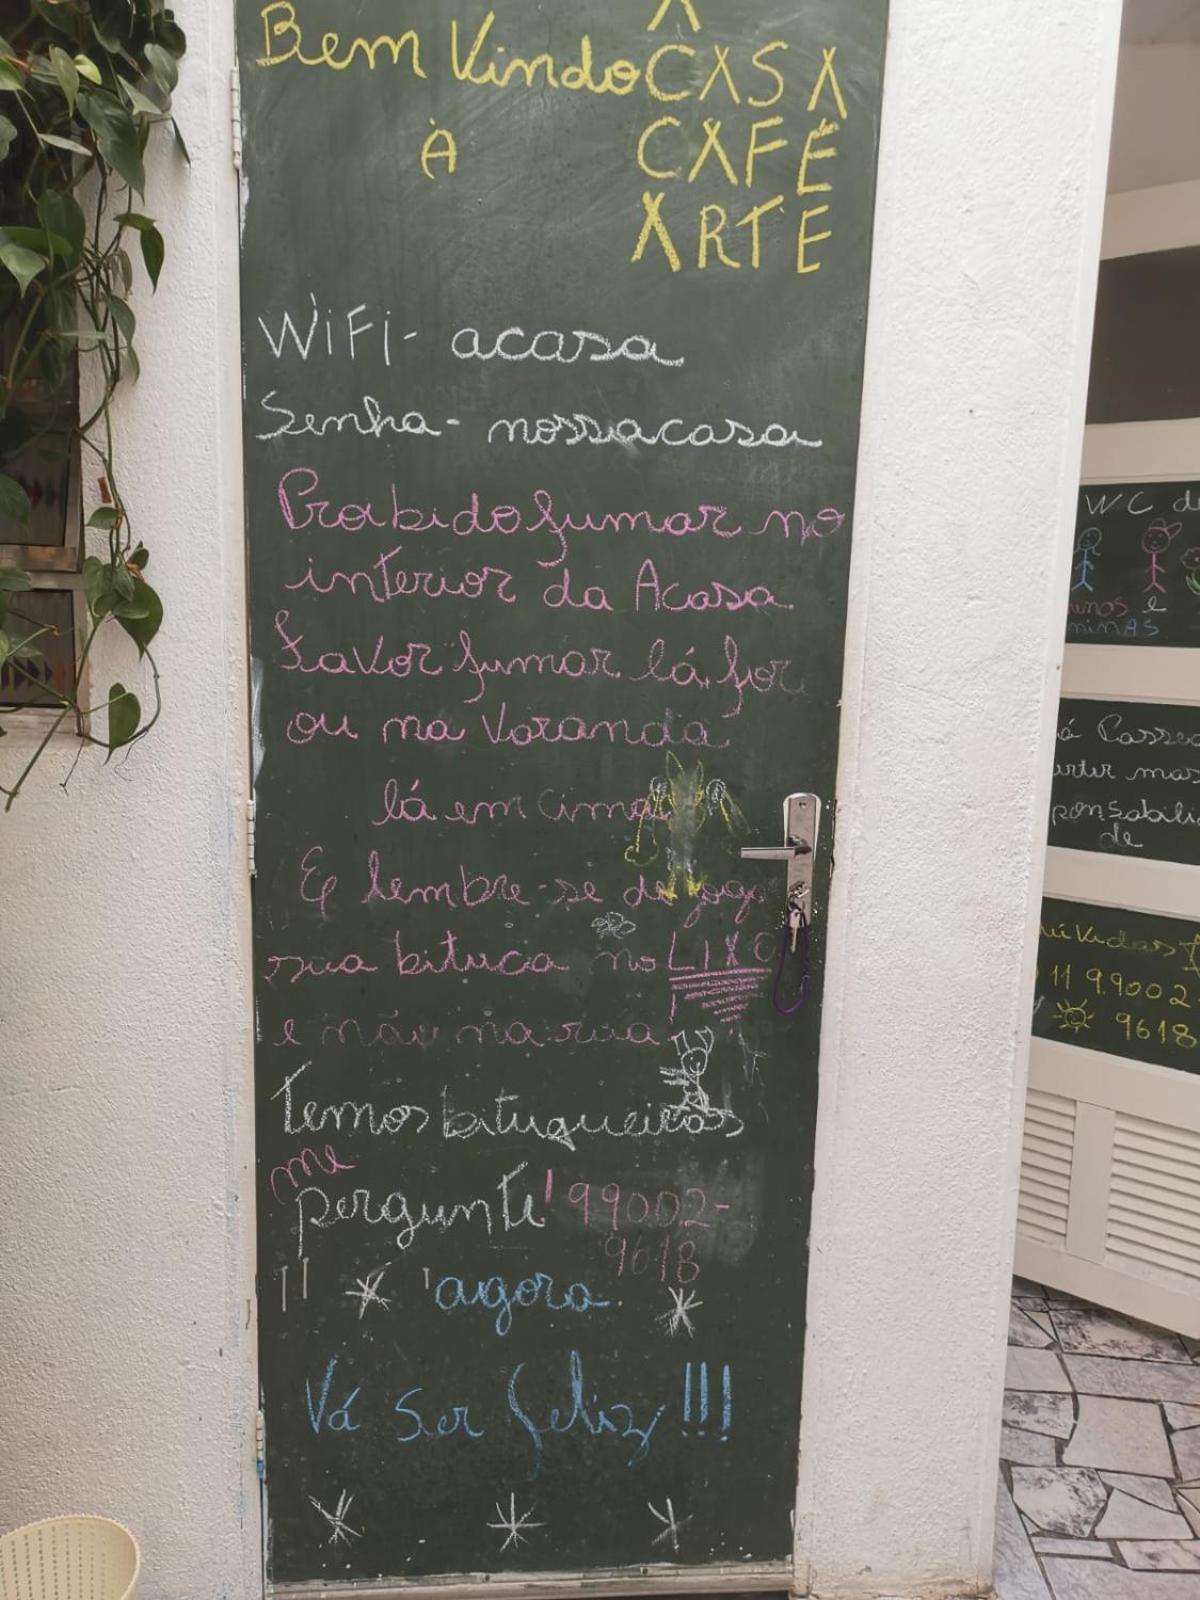 Bem Vindo
À
A
CASA
CAFÉ
ARTE
WiFi - acasa
Senha - nossacasa
Proibido fumar no
interior da Acasa.
Favor fumar lá for
ou na Varanda
lá em cima
E lembre-se de joga
sua bituca no LIXO
e não na rua
Temos bituqueiras
me
pergunte! 99002-
9618
agora.
Vá Ser feliz!!!
WC d
e
ninAS
ponsabili
de
11 9.9002
9618